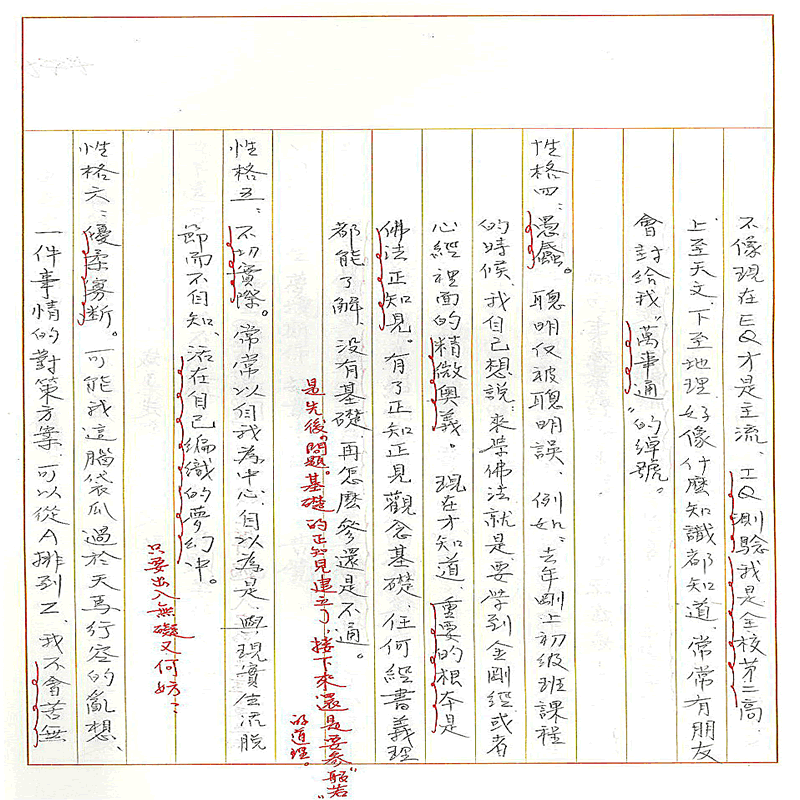 不像現在EQ才是主流、IQ測驗我是全校第二高、
上至天文、下至地理好像什麼知識都知道、常常有朋友
會對給我"萬事通"的綽號。
性格四：愚蠢。聰明仅被聰明誤、例如：去年剛上初級班課程
的時候、我自己想說：來學佛法就是要學到金剛經或者
心經裡面的精微奧義。現在才知道、重要的根本是
佛法正知見。有了正知正見觀念基礎、任何經書義理
都能了解、沒有基礎、再怎麼參還是不通。
是先後問題。基礎的正知見建立了，接下來還是要參"般若"
的道理。
性格五、不切實際。常常以自我為中心、自以為是、與現實生流脫
節而不自知、活在自己編織的夢幻中。
只要出入無礙又何妨：
性格六：優柔寡斷。可能我這腦袋瓜過於天馬行空的亂想、
一件事情的對策方案、可以從A排到Z、我不會苦無